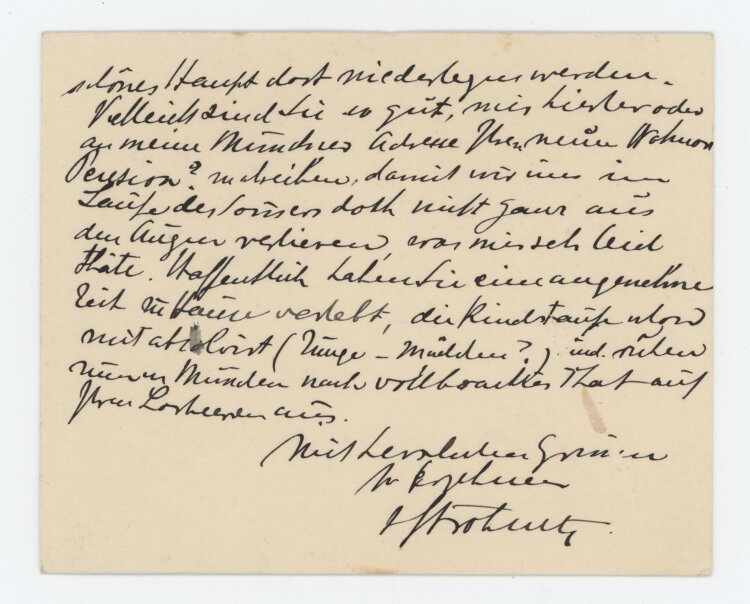 schönes Haupt dort niederlegen werden.
Vielleicht sind Sie so gut, mir hierher oder
an meine Münchner Adresse Ihre neue
Pension? zu schreiben, damit wir uns im
Laufe des Sommers doch nicht ganz aus
den Augen verlieren, was mir sehr leid
thäte. Hoffentlich haben Sie eine angenehme
Zeit zu Hause verlebt, die Kindstaufe
mit absolvirt (Junge – Mädchen?) und ruhen
nun in München nach vollbrachter That auf
Ihren Lorbeeren aus.
Mit herzlichen Grüssen
Ihr ergebener